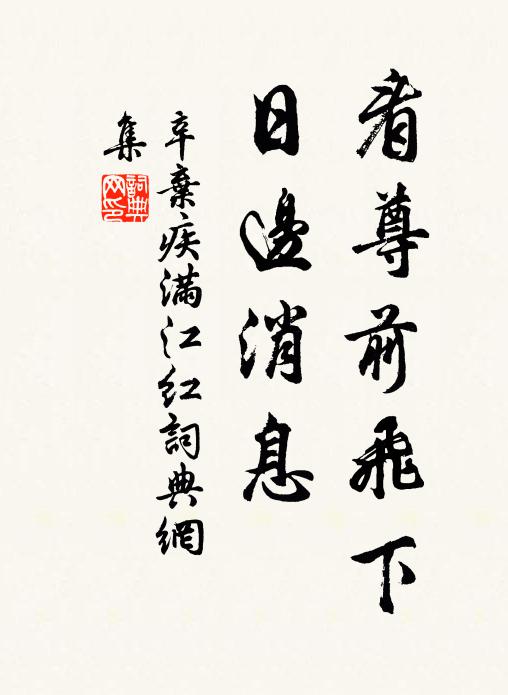 看尊前飛下
日邊消息
辛棄疾滿江紅詞典網
集
詞典網印